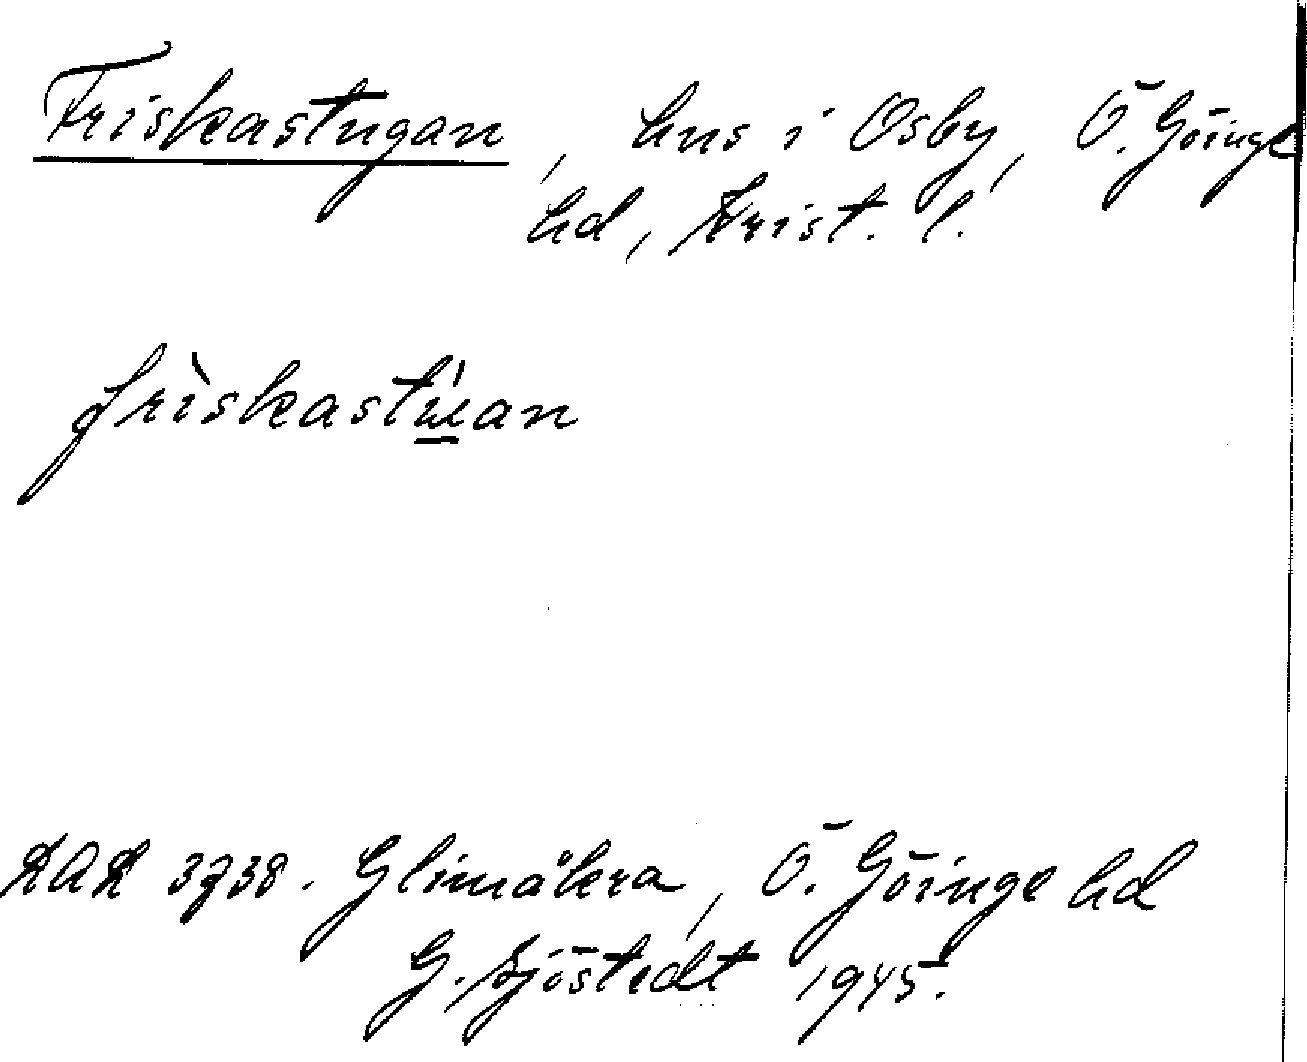 Friskastugan, hus i Osby, Ö. Göinge
hd, Krist. l.
frìskastúan
3738. Glimåkra, Ö. Göinge hd
G. Sjöstedt 1945.